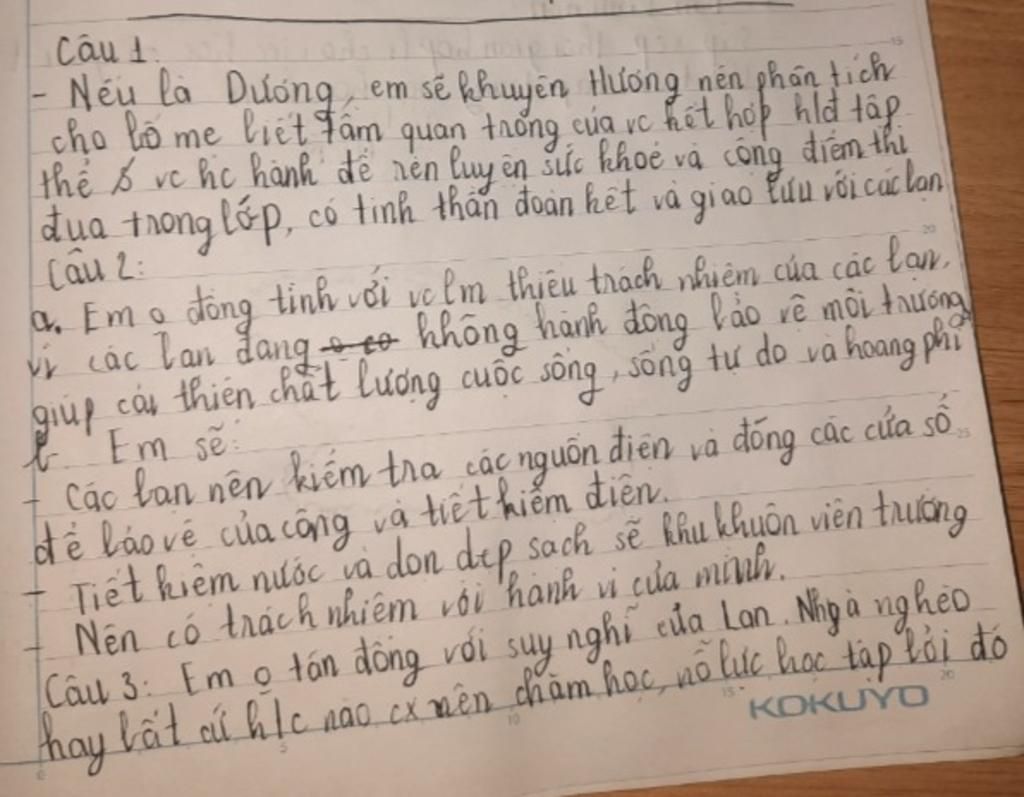 Câu 1.
- Nếu là Dương, em sẽ khuyên Hương nên phân tích
cho bố mẹ biết tầm quan trọng của vc kết hợp hlđ tập
thể & vc hc hành để rèn luyện sức khoẻ và cộng điểm thi
đua trong lớp, có tinh thần đoàn kết và giao lưu với các bạn
Câu 2:
a. Em o đồng tình với vc lm thiếu trách nhiệm của các bạn.
vì các bạn đang o có không hành động bảo vệ môi trường
giúp cải thiện chất lượng cuộc sống, sống tự do và hoang phí
b. Em sẽ:
+ Các bạn nên kiểm tra các nguồn điện và đóng các cửa sổ
để bảo vệ của công và tiết kiệm điện.
+ Tiết kiệm nước và dọn dẹp sạch sẽ khu khuôn viên trường
+ Nên có trách nhiệm với hành vi của mình.
Câu 3: Em o tán đồng với suy nghĩ của Lan. Nhg à nghèo
hay bất cứ h/c nào cx nên chăm học, nỗ lực học tập bởi đó
KOKUYO
5
10
15
20
15
20
25
0